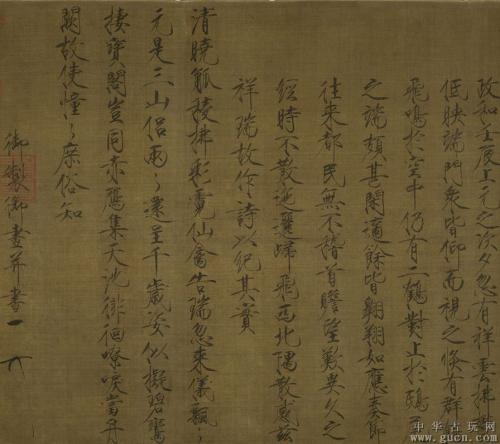 政和壬辰上元之次夕忽有祥雲拂
低映端門衆皆仰而視之倏有群
飛鳴於空中仍有二鶴對止於鴟
之端頗甚閑適餘皆翱翔如應奏節
往來都民無不稽首瞻望歎異久之
經時不散迤邐歸飛西北隅散感茲
祥瑞故作詩以紀其實
清曉觚稜拂彩霓仙禽告瑞忽來儀飄〻
元是三山侶兩〻還呈千歲姿似擬碧鸞
棲寶閣豈同赤鴈集天池徘徊嘹唳當丹
闕故使憧〻庶俗知
御製御畫并書
中华古玩网
www.gucn.com